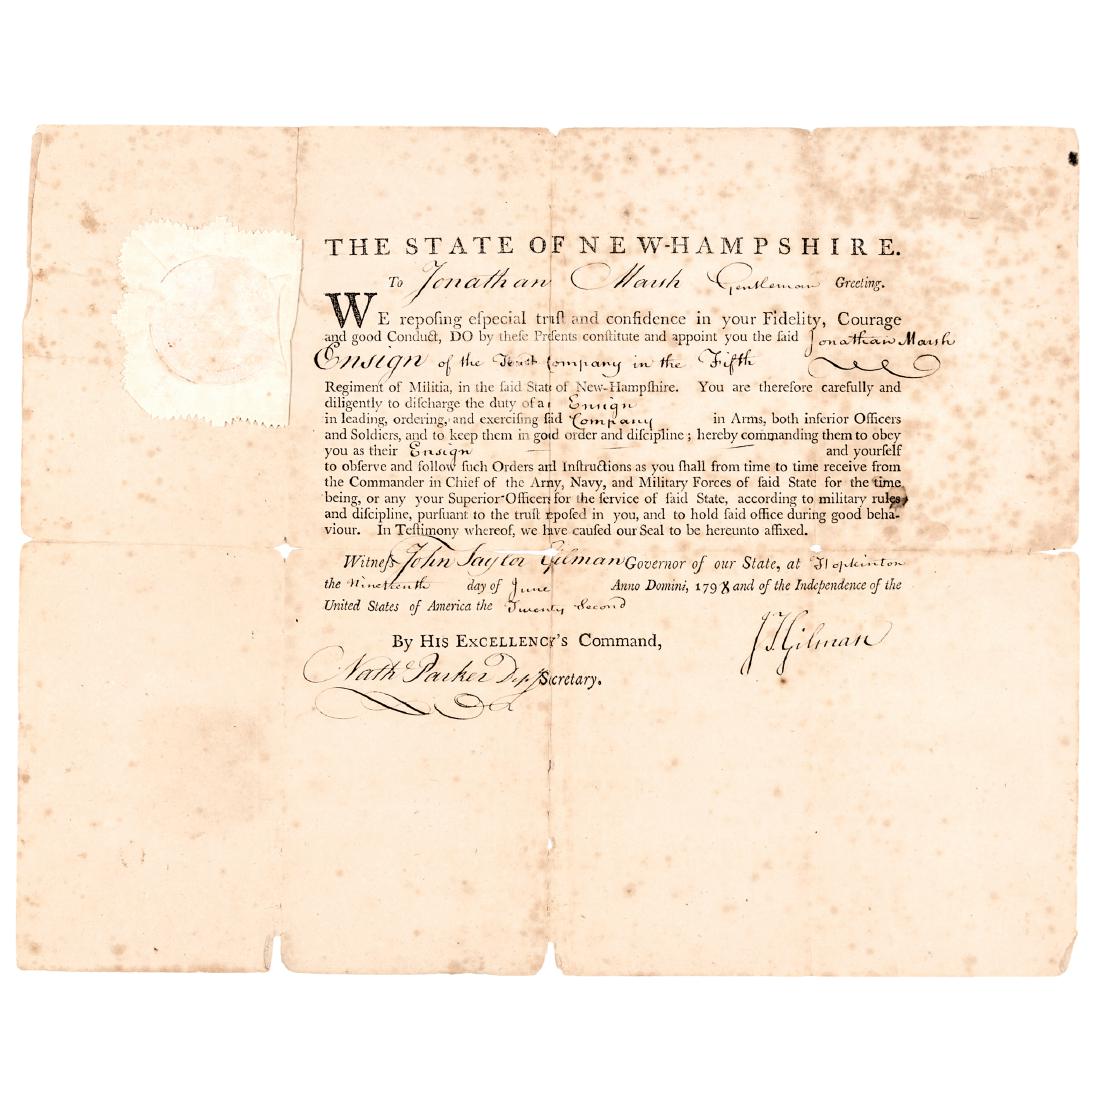 THE STATE OF NEW-HAMPSHIRE.
To Jonathan Marsh Gentleman Greeting.
WE reposing eſpecial truſt and confidence in your Fidelity, Courage
and good Conduct, DO by theſe Preſents conſtitute and appoint you the ſaid Jonathan Marsh
Ensign of the Company in the Fifth
Regiment of Militia, in the ſaid State of New-Hampſhire. You are therefore carefully and
diligently to diſcharge the duty of a Ensign
in leading, ordering, and exerciſing ſaid Company in Arms, both inferior Officers
and Soldiers, and to keep them in good order and diſcipline; hereby commanding them to obey
you as their Ensign and yourſelf
to obſerve and follow ſuch Orders and Inſtructions as you ſhall from time to time receive from
the Commander in Chief of the Army, Navy, and Military Forces of ſaid State for the time
being, or any your Superior-Officers for the ſervice of ſaid State, according to military rules
and diſcipline, purſuant to the truſt repoſed in you, and to hold ſaid office during good beha-
viour. In Teſtimony whereof, we have cauſed our Seal to be hereunto affixed.
Witneſs John Taylor Gilman Governor of our State, at Hopkinton
the Nineteenth day of June Anno Domini, 1798 and of the Independence of the
United States of America the Twenty Second
By HIS EXCELLENCY'S Command,
J T Gilman
Nathl Parker Depy Secretary.